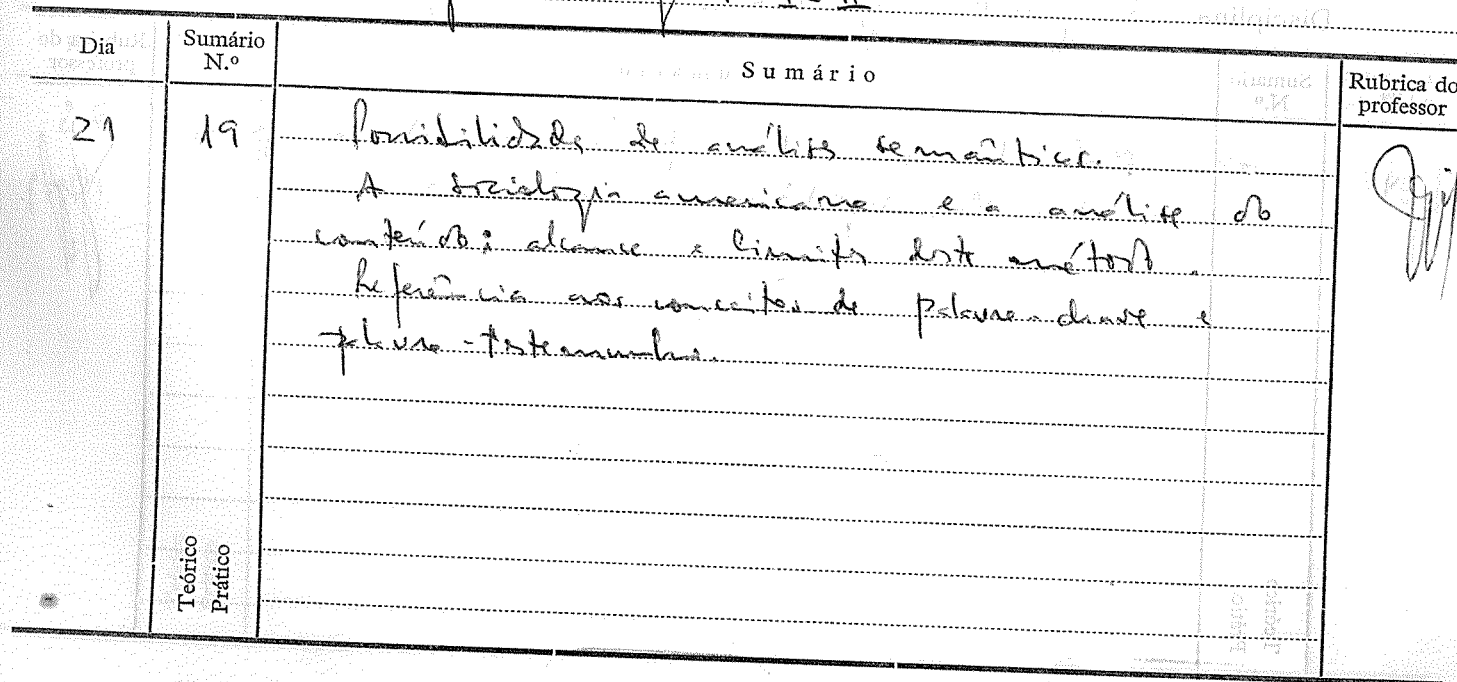 I - II
Dia
Sumário N.º
Sumário
Rubrica do professor
21
19
Possibilidade de análise semântica.
A sociologia americana e a análise do
conteúdo; alcance e limites deste método.
Referência aos conceitos de palavra-chave e
palavra-testemunho.
Teórico
Prático